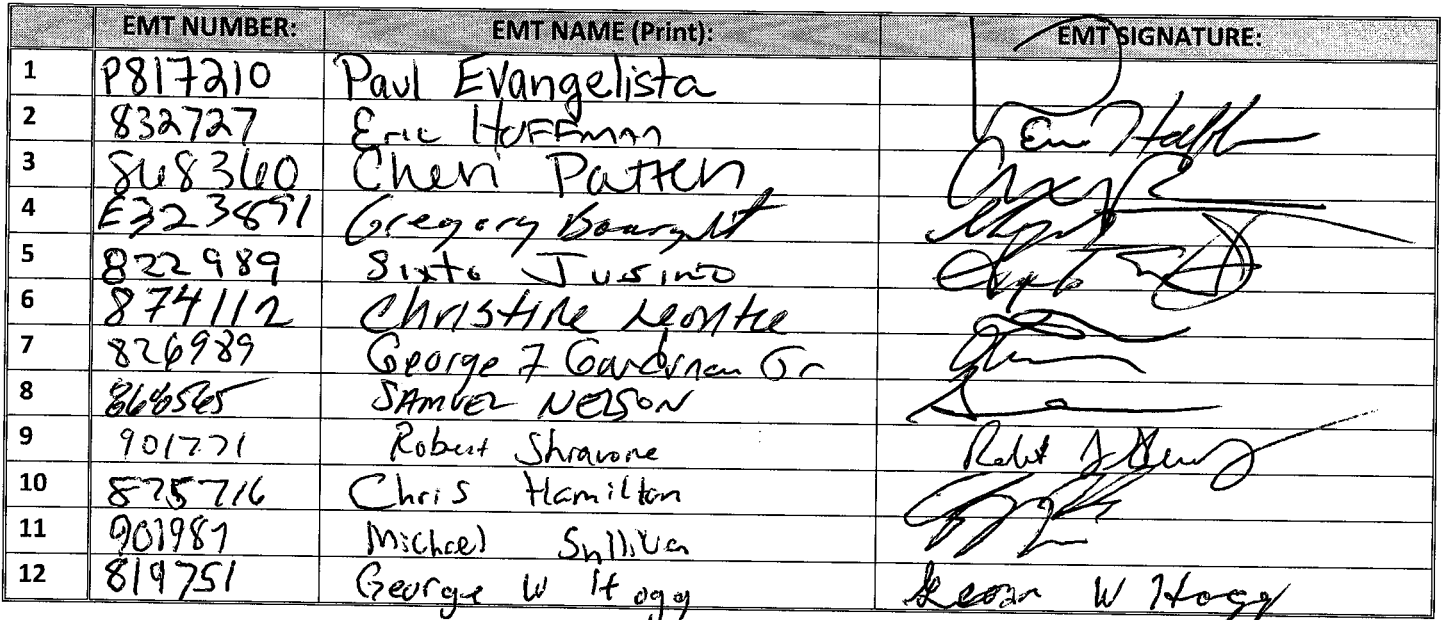 EMT NUMBER: EMT NAME (Print): EMT SIGNATURE:
1 P817210 Paul Evangelista
2 832727 Eric HOFFman
3 868360 Cheri Patten
4 E3223891 Gregory
5 822989 Sixto Jusino
6 874112 Christine
7 826989 George F Jr
8 SAMUEL NELSON
9 901771 Robert
10 875716 Chris Hamilton
11 901987 Michael Sullivan
12 819751 George W Hogg George W Hogg